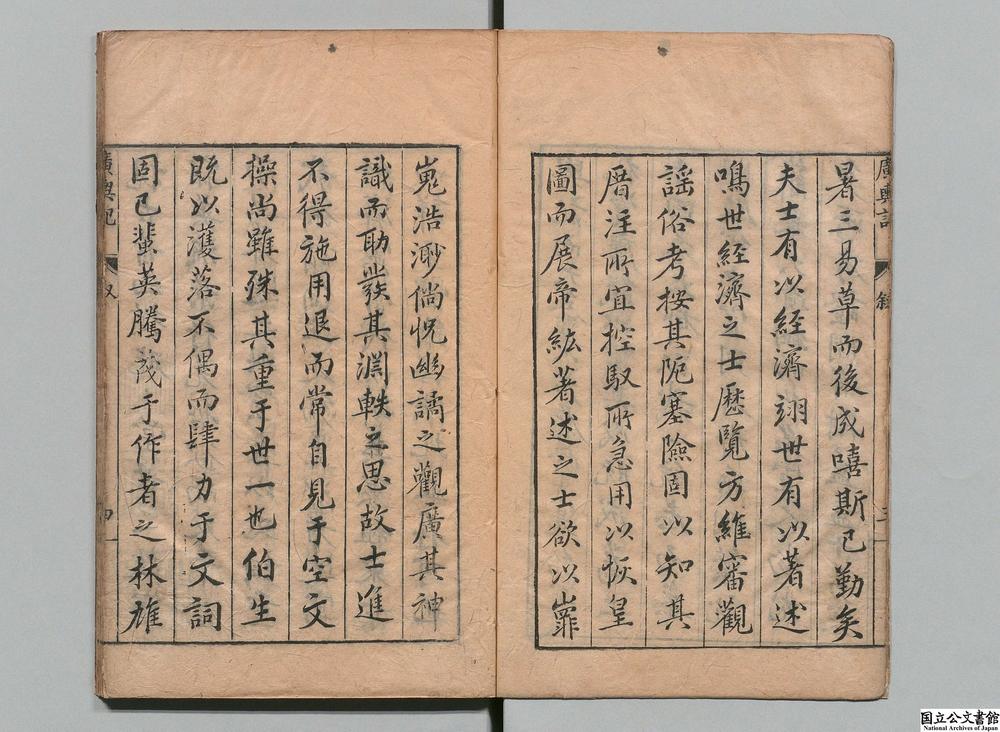 廣輿記
叙
三
暑三易草而後成嘻斯已勤矣
夫士有以經濟翊世有以著述
鳴世經濟之士歷覽方維審觀
謡俗考按其阨塞險固以知其
厝注所宜控馭所急用以恢皇
圖而展帝紘著述之士欲以
嵬浩渺倘怳幽譎之觀廣其神
識而助發其淵軼之思故士進
不得施用退而常自見于空文
操尚雖殊其重于世一也伯生
既以濩落不偶而肆力于文詞
固已蜚英騰茂于作者之林雄
廣輿記
叙
四
国立公文書館
National Archives of Japan